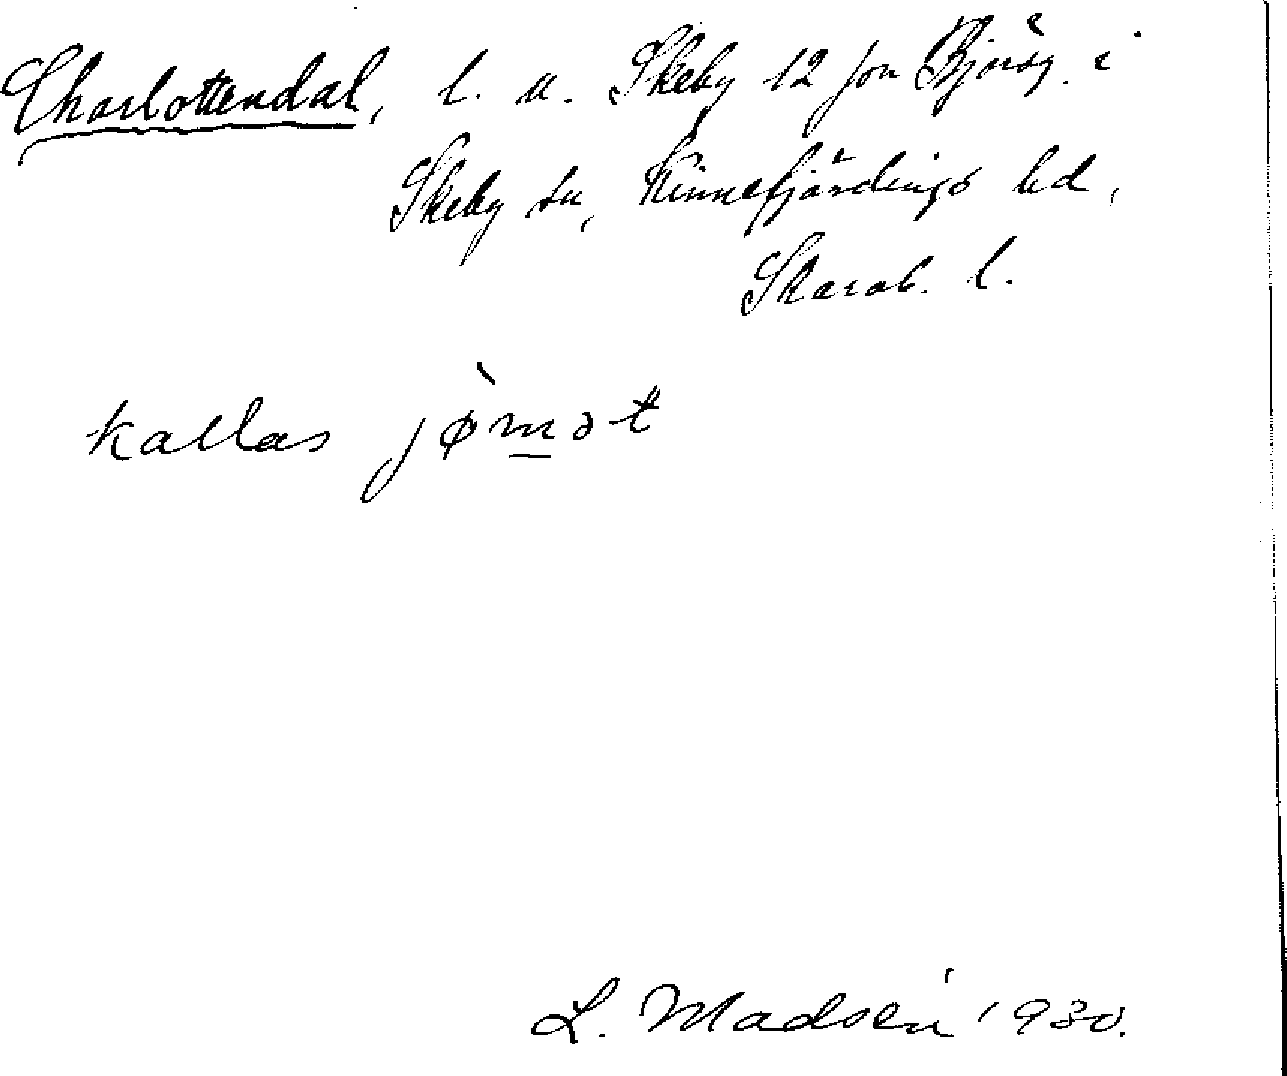 Charlottendal, l. u. Skeby 12 Jon Björsg. i
Skeby sn, Kinnefjärdings hd,
Skarab. l.
kallas jø̀m̲ət
L. Madsén 1930.